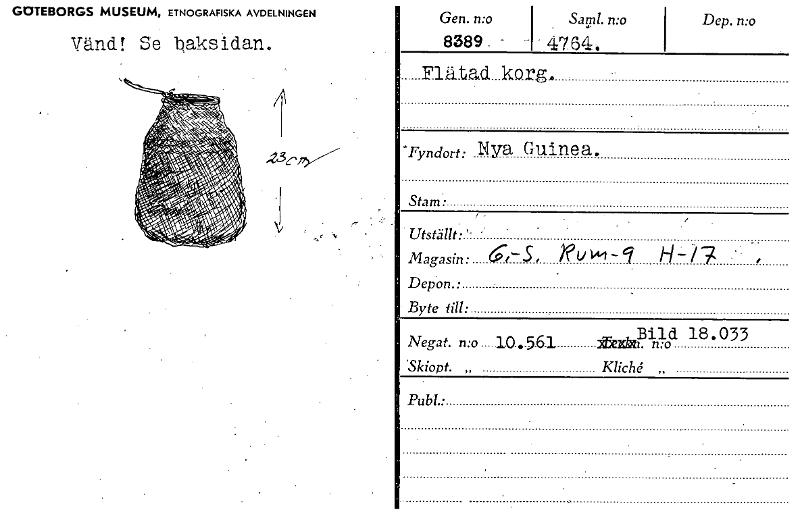 GÖTEBORGS MUSEUM, ETNOGRAFISKA AVDELNINGEN
Vänd! Se baksidan.
23cm
Gen. n:o Saml. n:o Dep. n:o
8389 4764.
Flätad korg.
Fyndort: Nya Guinea.
Stam:
Utställt:
Magasin: G.-S. Rum-9 H-17
Depon.:
Byte till:
Negat. n:o 10.561 n:o Bild 18.033
Skiopt. „ Kliché „
Publ.: